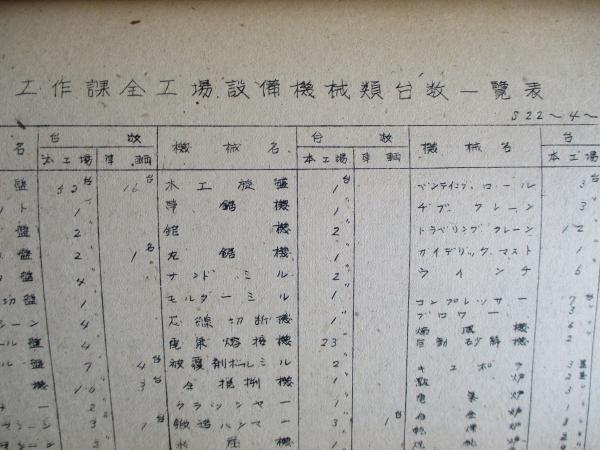 工作課全工場設備機械類台数一覧表
S22〜4〜
名 台数 機械名 台数 機械名 台
本工場 車輌 本工場 車輌 本工場
盤 52台 16台 木工旋盤 1台 ベンディングロール 3台
ト 1〃 帯鋸機 1〃 ヂブクレーン 3〃
盤 2〃 鉋機 2〃 トラベリングクレーン 12〃
盤 2〃 1台 丸鋸機 1〃 ガイデリックマスト 1〃
盤 4〃 サンドミル 2〃 ウインチ 6〃
切盤 1〃 モルダーミル 1〃 コンプレッサー 7台
シーン 4〃 芯線切断機 1〃 ブロワー 3〃
ール盤 4〃 電気熔接機 23〃
ル盤 7〃 4台 被覆剤ボールミル 2〃 キュポラ 3基
機 10〃 3台 仝攪拌機 1〃
ー 2〃 クラッシャー 1〃
シーン 3〃 1台 鍛造ハンマー 3〃 1台
水圧機